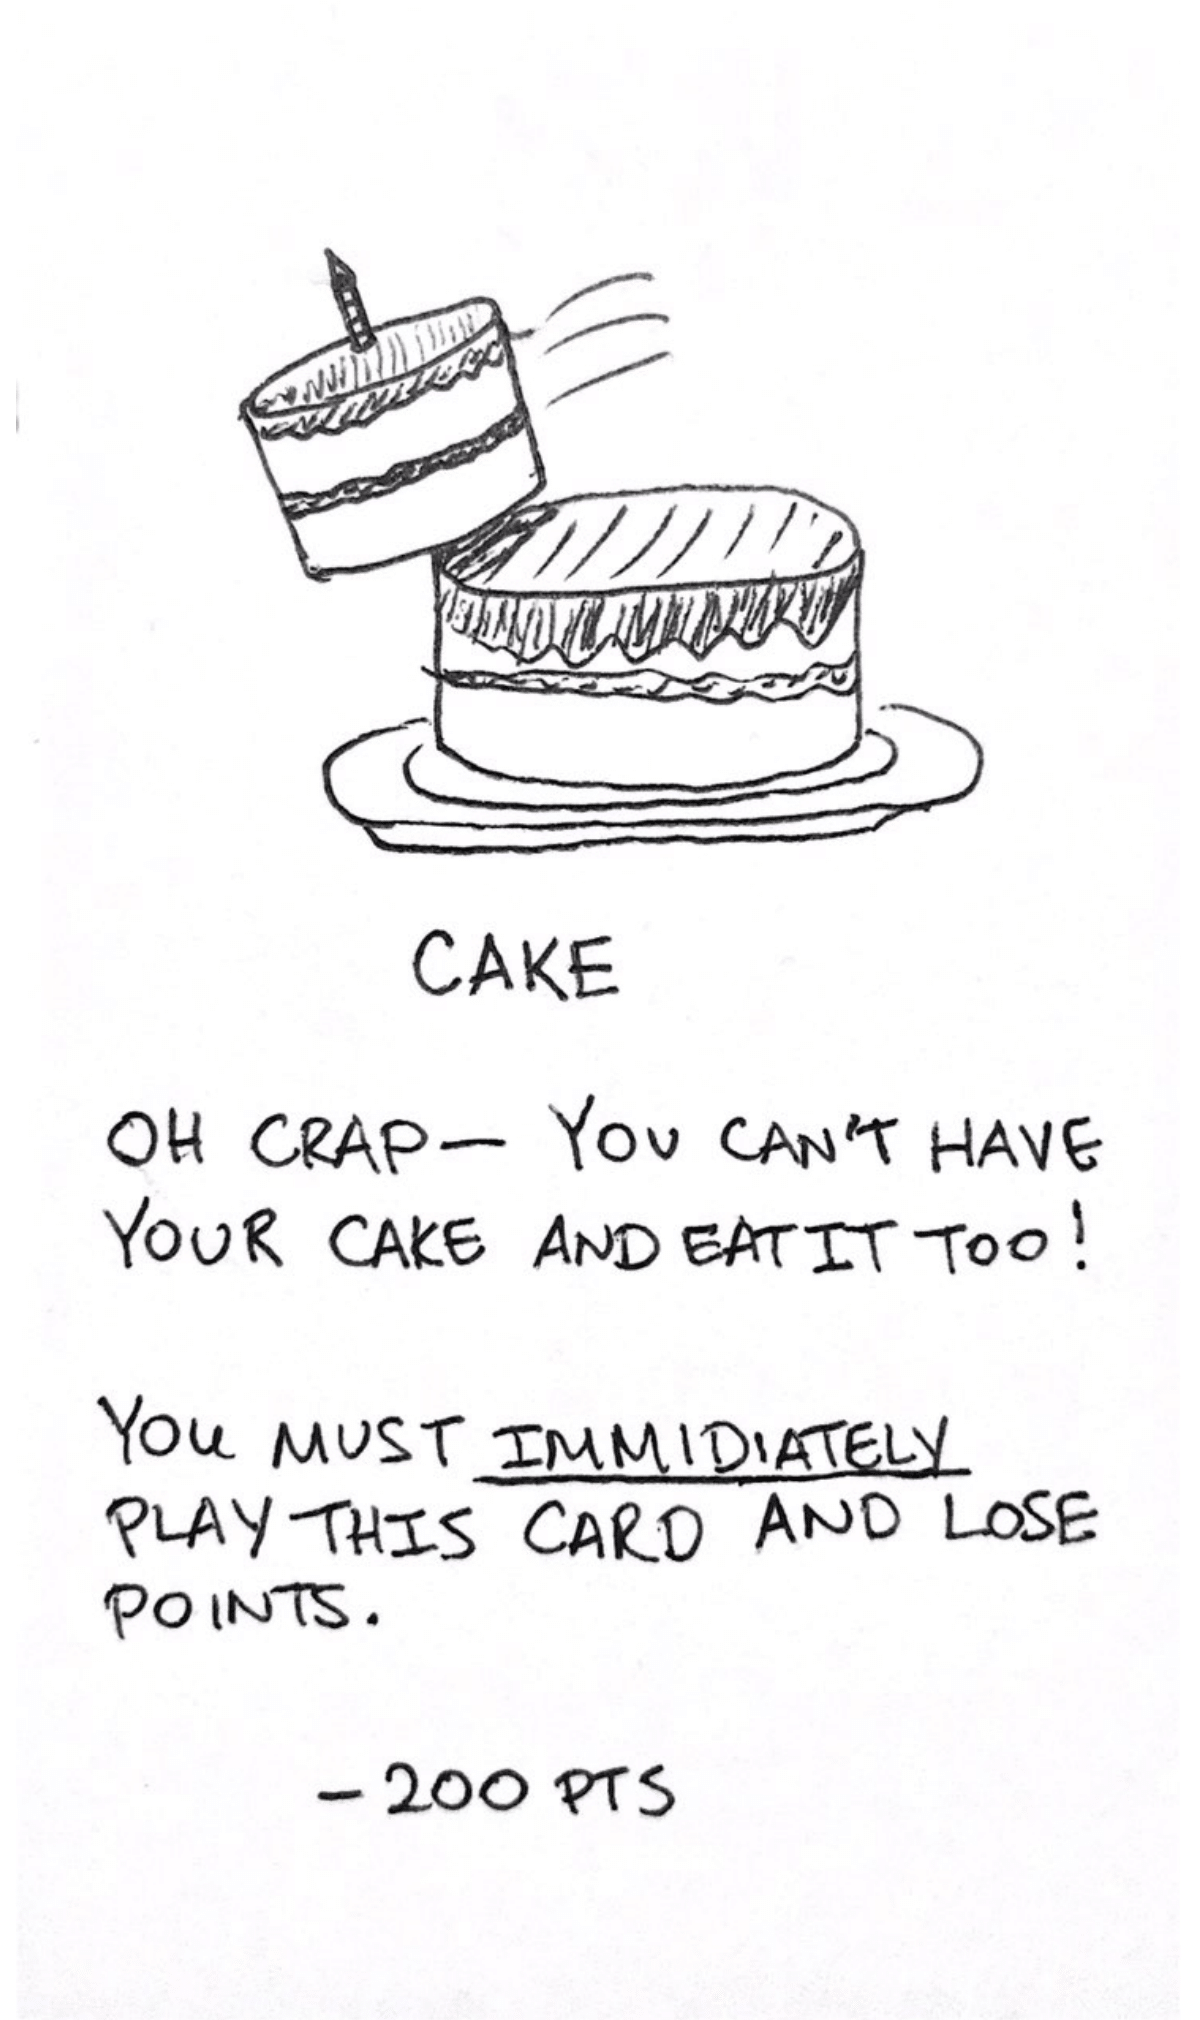 CAKE
OH CRAP— YOU CAN'T HAVE
YOUR CAKE AND EAT IT TOO!
YOU MUST IMMIDIATELY
PLAY THIS CARD AND LOSE
POINTS.
-200 PTS